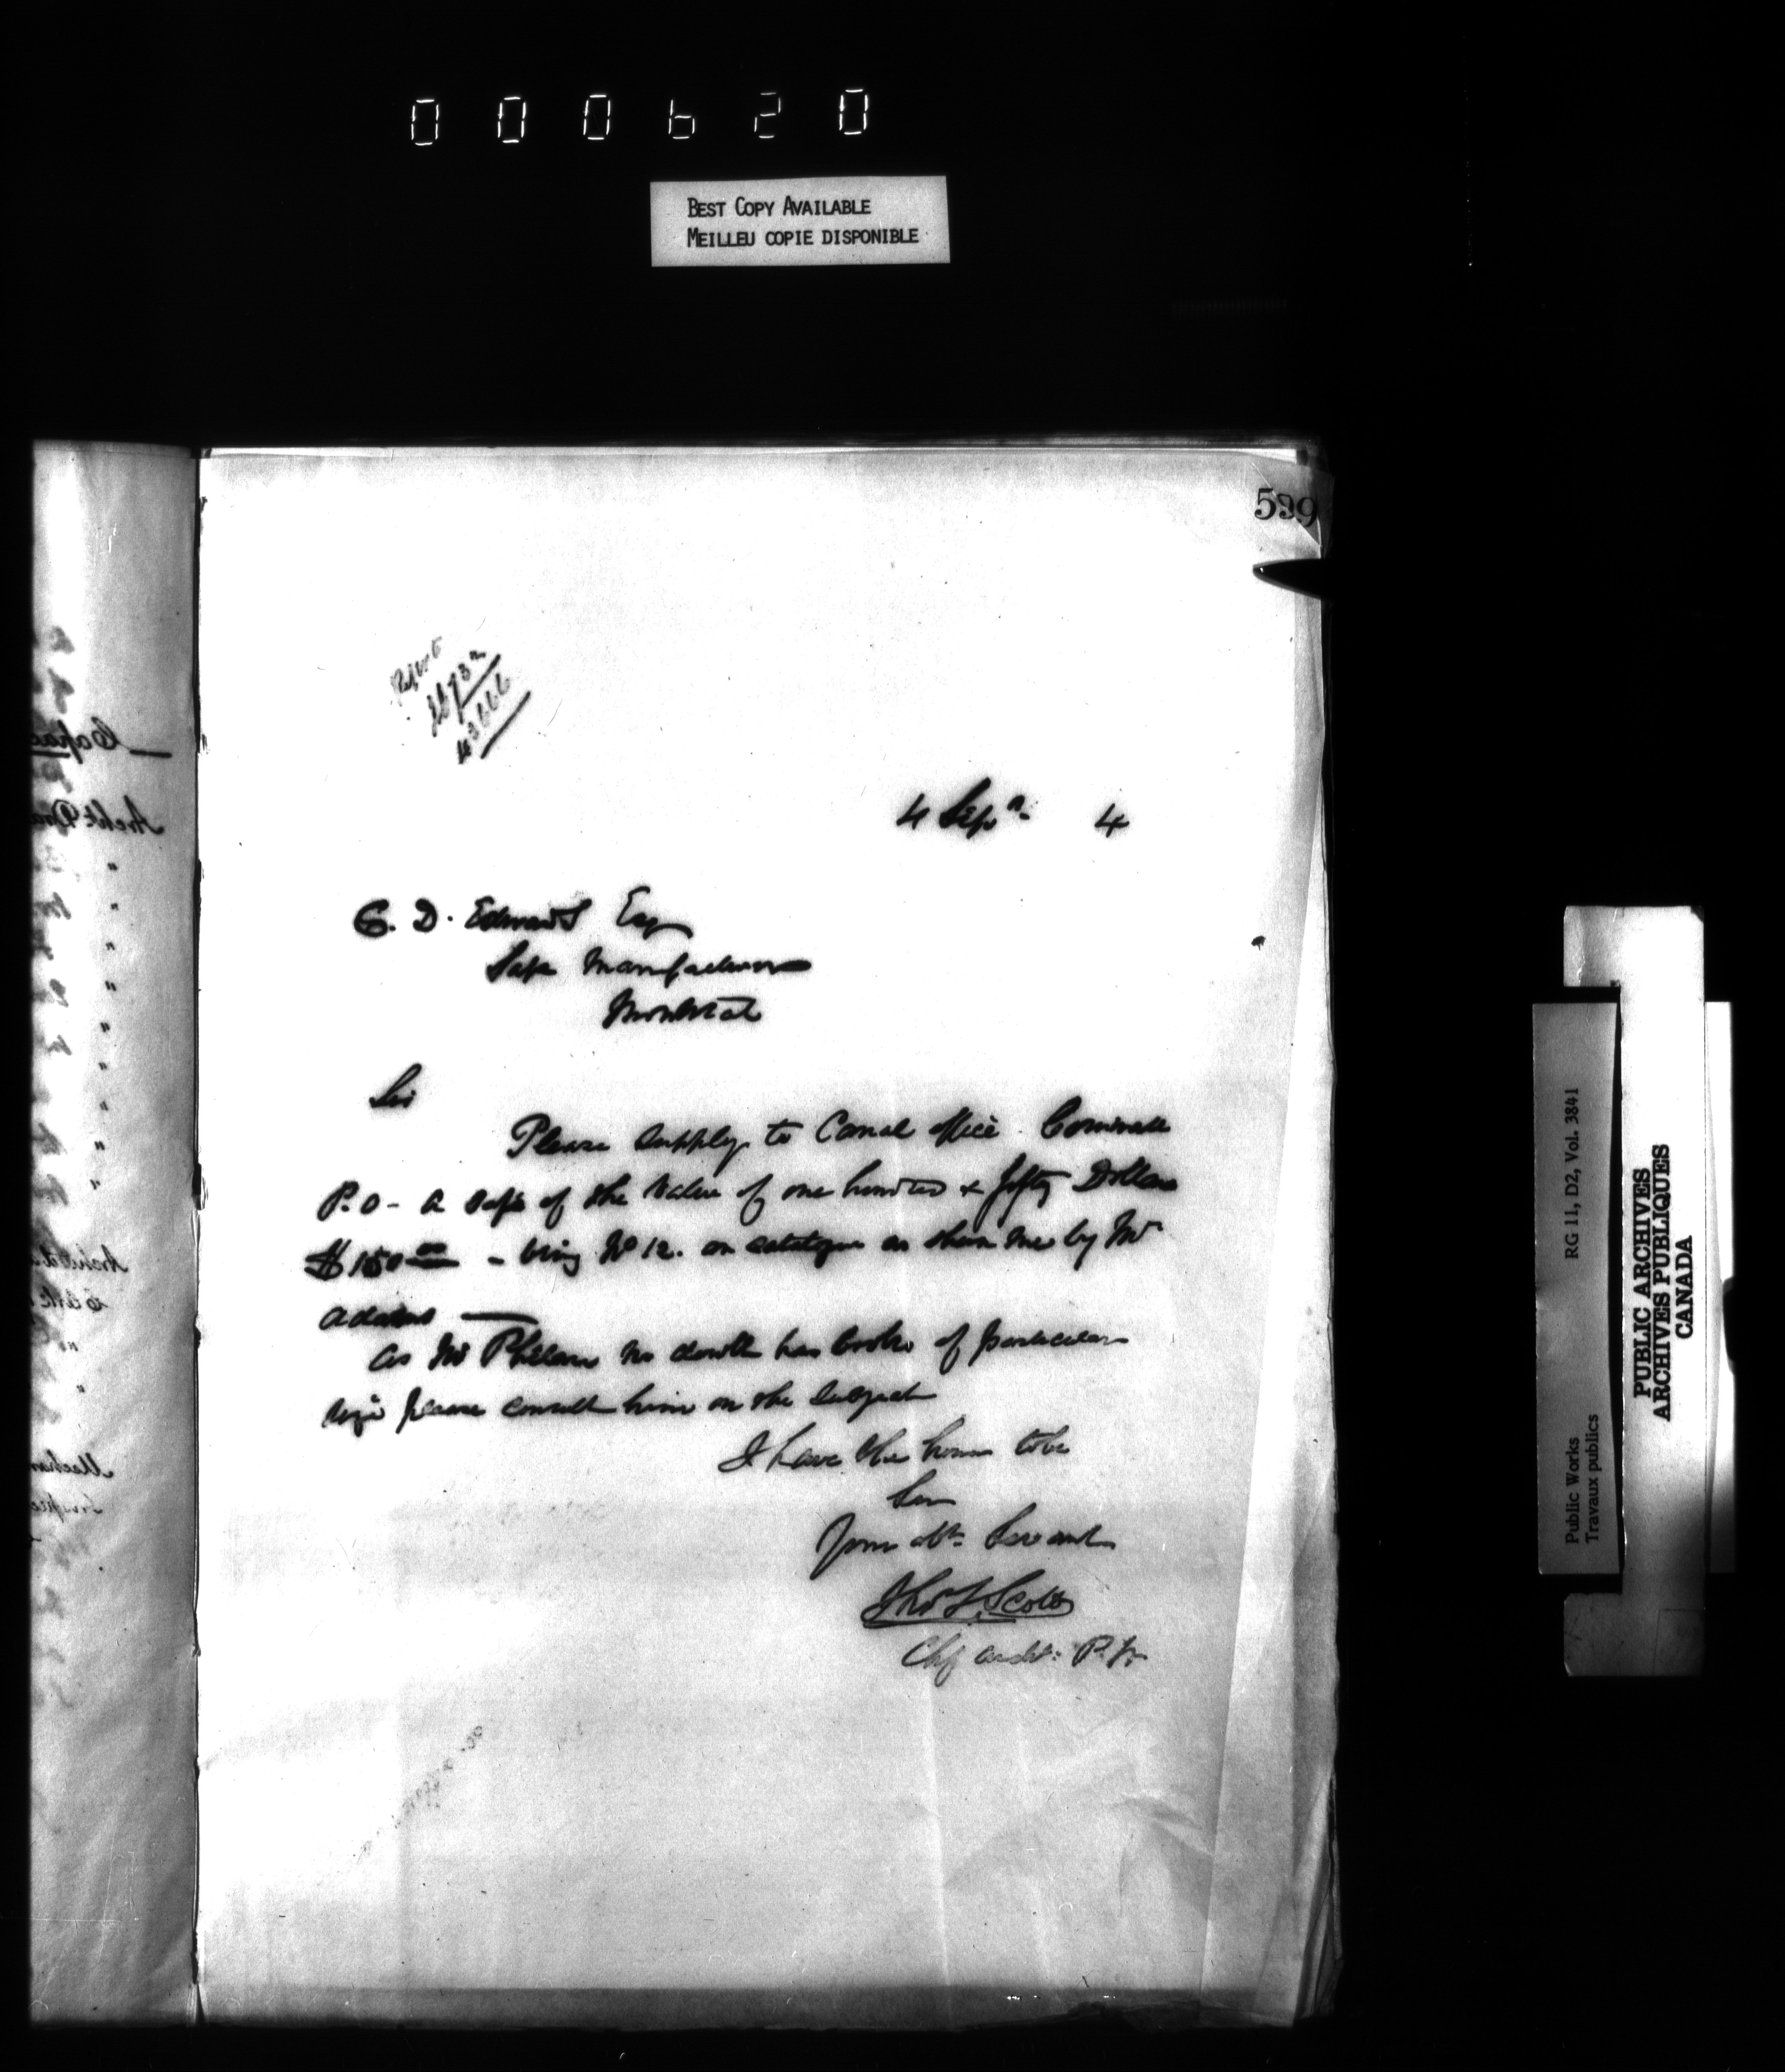 000620
BEST COPY AVAILABLE
MEILLEU COPIE DISPONIBLE
599
4 Sepr. 4
C. D. Edwards Esq
Safe Manufacturer
Montreal
Sir
Please supply to Canal office Cornwall
P.O - a safe of the value of one hundred & fifty Dollars
$150 00 - being No 12. on catalogue as shewn me by Mr
Adams
As Mr Phelan no doubt has books of particular
size please consult him on the subject
I have the honor to be
Sir
Your obt. Servant
Thos S. Scott
Chf archt: P. W.
Public Works
Travaux publics
RG 11, D2, Vol. 3841
PUBLIC ARCHIVES
ARCHIVES PUBLIQUES
CANADA